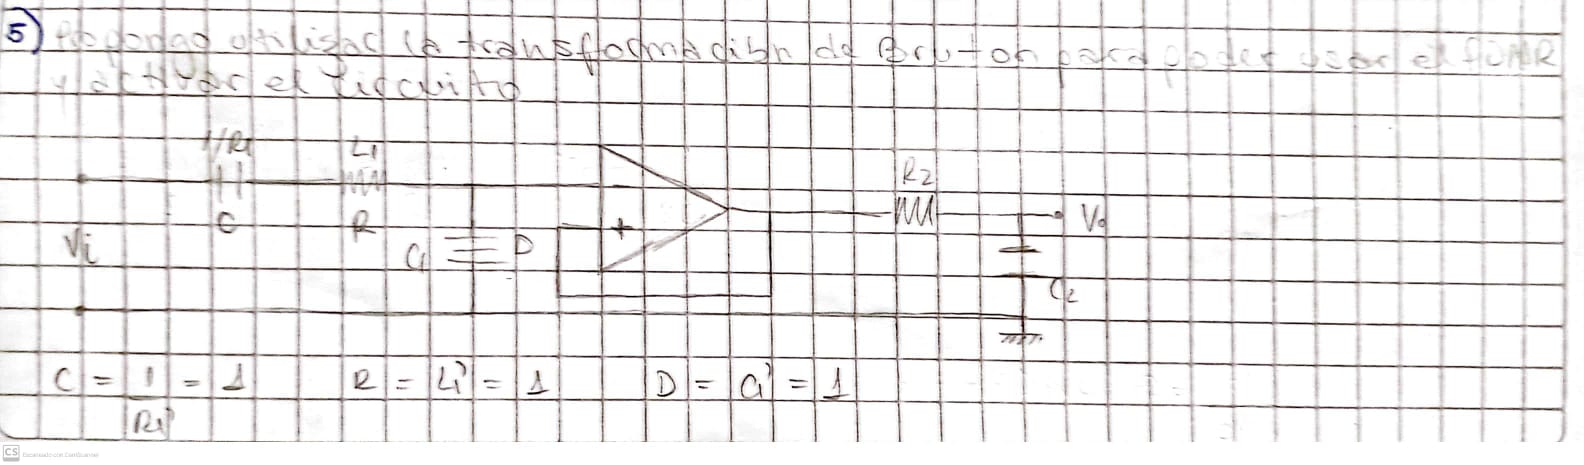 5) Propongo utilisar la transformación de Bruton para poder usar el
y activar el circuito
1/R1 L1 R2
C R Vo
Vi C1 D +
C2
C = 1/R1' = 1 R = L1' = 1 D = C1' = 1
CS Escaneado con CamScanner